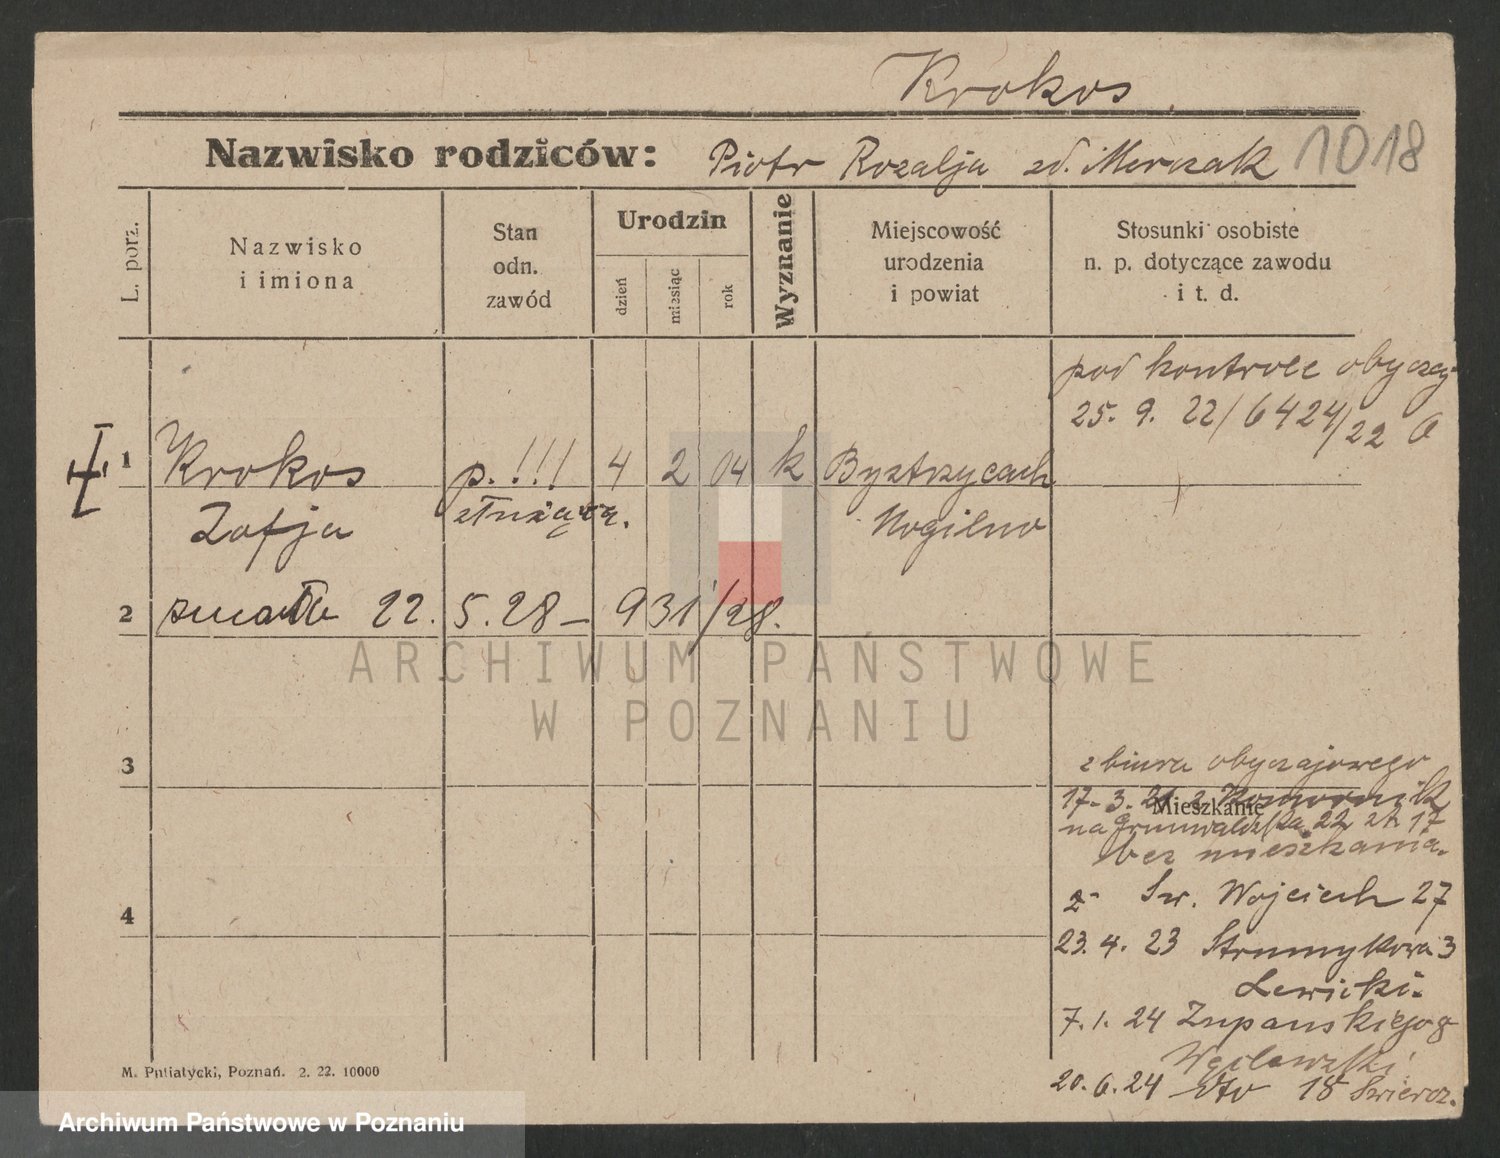 Krokos
Nazwisko rodziców: Piotr Rozalja zd. Merczak 1018
L. porz.
Nazwisko
i imiona
Stan
odn.
zawód
Urodzin
dzień
miesiąc
rok
Wyznanie
Miejscowość
urodzenia
i powiat
Stosunki osobiste
n. p. dotyczące zawodu
i t. d.
pod kontrole obyczaj
25. 9. 22/6424/22
1 Krokos p. !!! 4 2 04 k Bystrzycach
Zofja służąca. Mogilno
2 zmarła 22. 5. 28 – 931/28.
ARCHIWUM PAŃSTWOWE
W POZNANIU
3
z biura obyczajowego
17-3. Komornik
Mieszkanie
na Grunwaldzka 22 17
bez mieszkania.
4
2- Św. Wojciech 27
23. 4. 23 Strumykowa 3
Lewicki.
7. 1. 24 Zupanskiego 8
Węclewski
20. 6. 24 dto 18
M. Putiatycki, Poznań. 2. 22. 10000
Archiwum Państwowe w Poznaniu